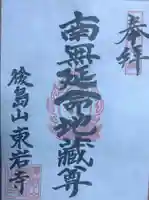 奉拝
南無延命地蔵尊
後島山 東岩寺